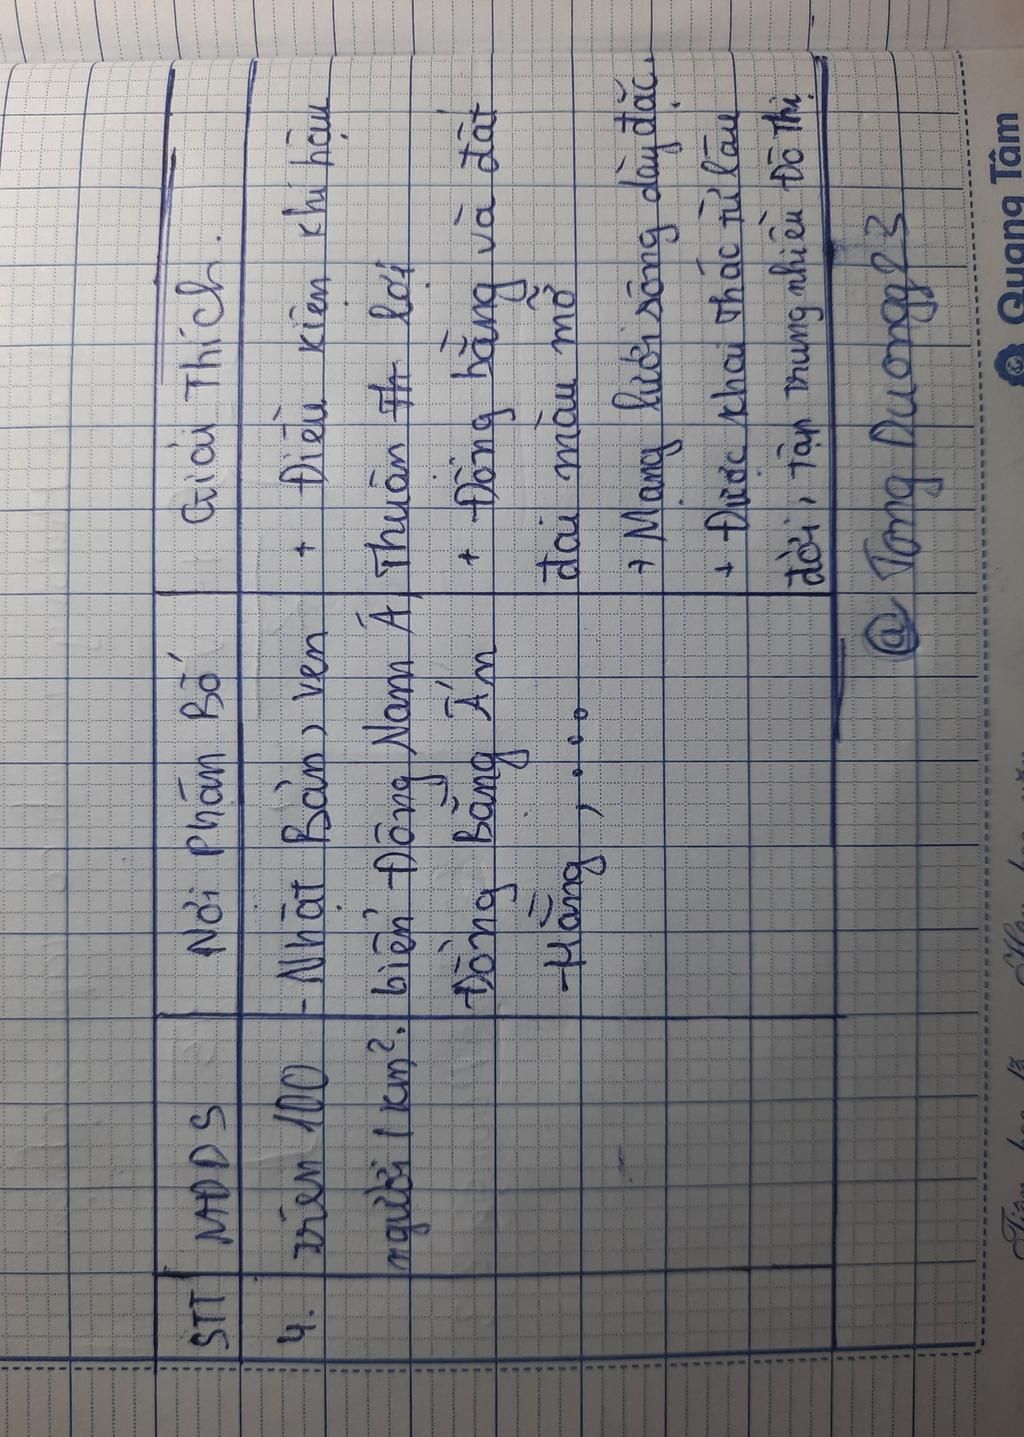 STT MĐDS Nơi Phân Bố Giải Thích.
4. trên 100 - Nhật Bản, ven + Điều kiện khí hậu
người / km². biển Đông Nam Á, Thuân Th lợi
Đồng Bằng Ấn + Đồng bằng và đất
Hằng, .... đai màu mỡ
+ Mạng lưới sông dày đặc.
+ Được khai thác từ lâu
đời, tập trung nhiều Đô Thị
@ Tong Duongg23
Quang Tâm